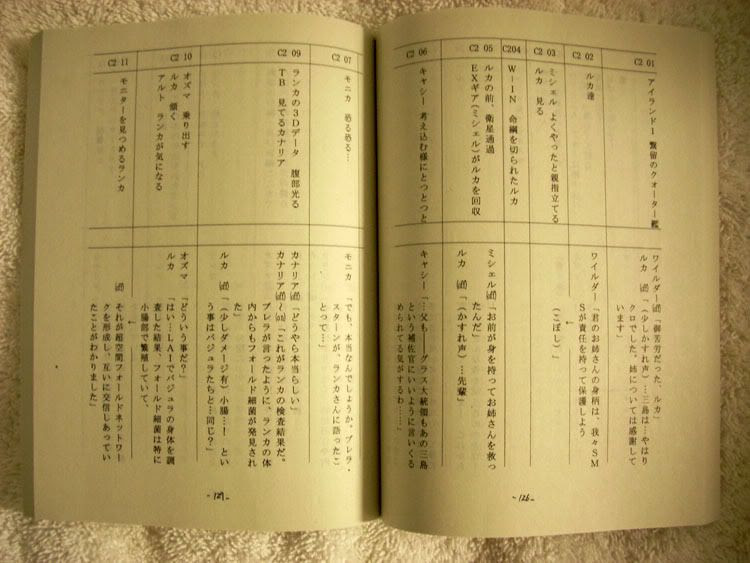 C2 01
アイランド1 繋留のクォーター艦
ワイルダー(off)「御苦労だった、ルカ」
ルカ (off)「(少しかすれ声)…三島は…やはり
クロでした。姉については感謝して
います」
C2 02
ルカ達
ワイルダー「君のお姉さんの身柄は、我々SM
Sが責任を持って保護しよう
(こぼし)」
C2 03
ミシェル よくやったと親指立てる
ルカ 見る
C204
W-IN 命綱を切られたルカ
C2 05
ルカの前、衛星通過
EXギア(ミシェル)がルカを回収
ミシェル(off)「お前が身を持ってお姉さんを救っ
たんだ」
ルカ (off)「(かすれ声)…先輩」
C2 06
キャシー 考え込む様にとつとつと
キャシー「…父も――グラス大統領もあの三島
という補佐官にいいように言いくる
められてる気がするわ……」
-126-
C2 07
モニカ 恐る恐る…
モニカ 「でも、本当なんでしょうか。ブレラ・
スターンが、ランカさんに語ったこ
とって…」
C2 09
ランカの3Dデータ 腹部光る
TB 見てるカナリア
カナリア(off)「どうやら本当らしい」
カナリア(off)~(on)「これがランカの検査結果だ。
ブレラが言ったように、ランカの体
内からもフォールド細菌が発見され
た」
ルカ (off)「(少しダメージ有)小腸…! とい
う事はバジュラたちと…同じ?」
C2 10
オズマ 乗り出す
ルカ 頷く
アルト ランカが気になる
オズマ 「どういう事だ?」
ルカ 「はい…LAIでバジュラの身体を調
査した結果、フォールド細菌は特に
小腸部で繁殖していて、
↓
C2 11
モニターを見つめるランカ
(off) それが超空間フォールドネットワー
クを形成し、互いに交信しあってい
たことがわかりました」
-127-